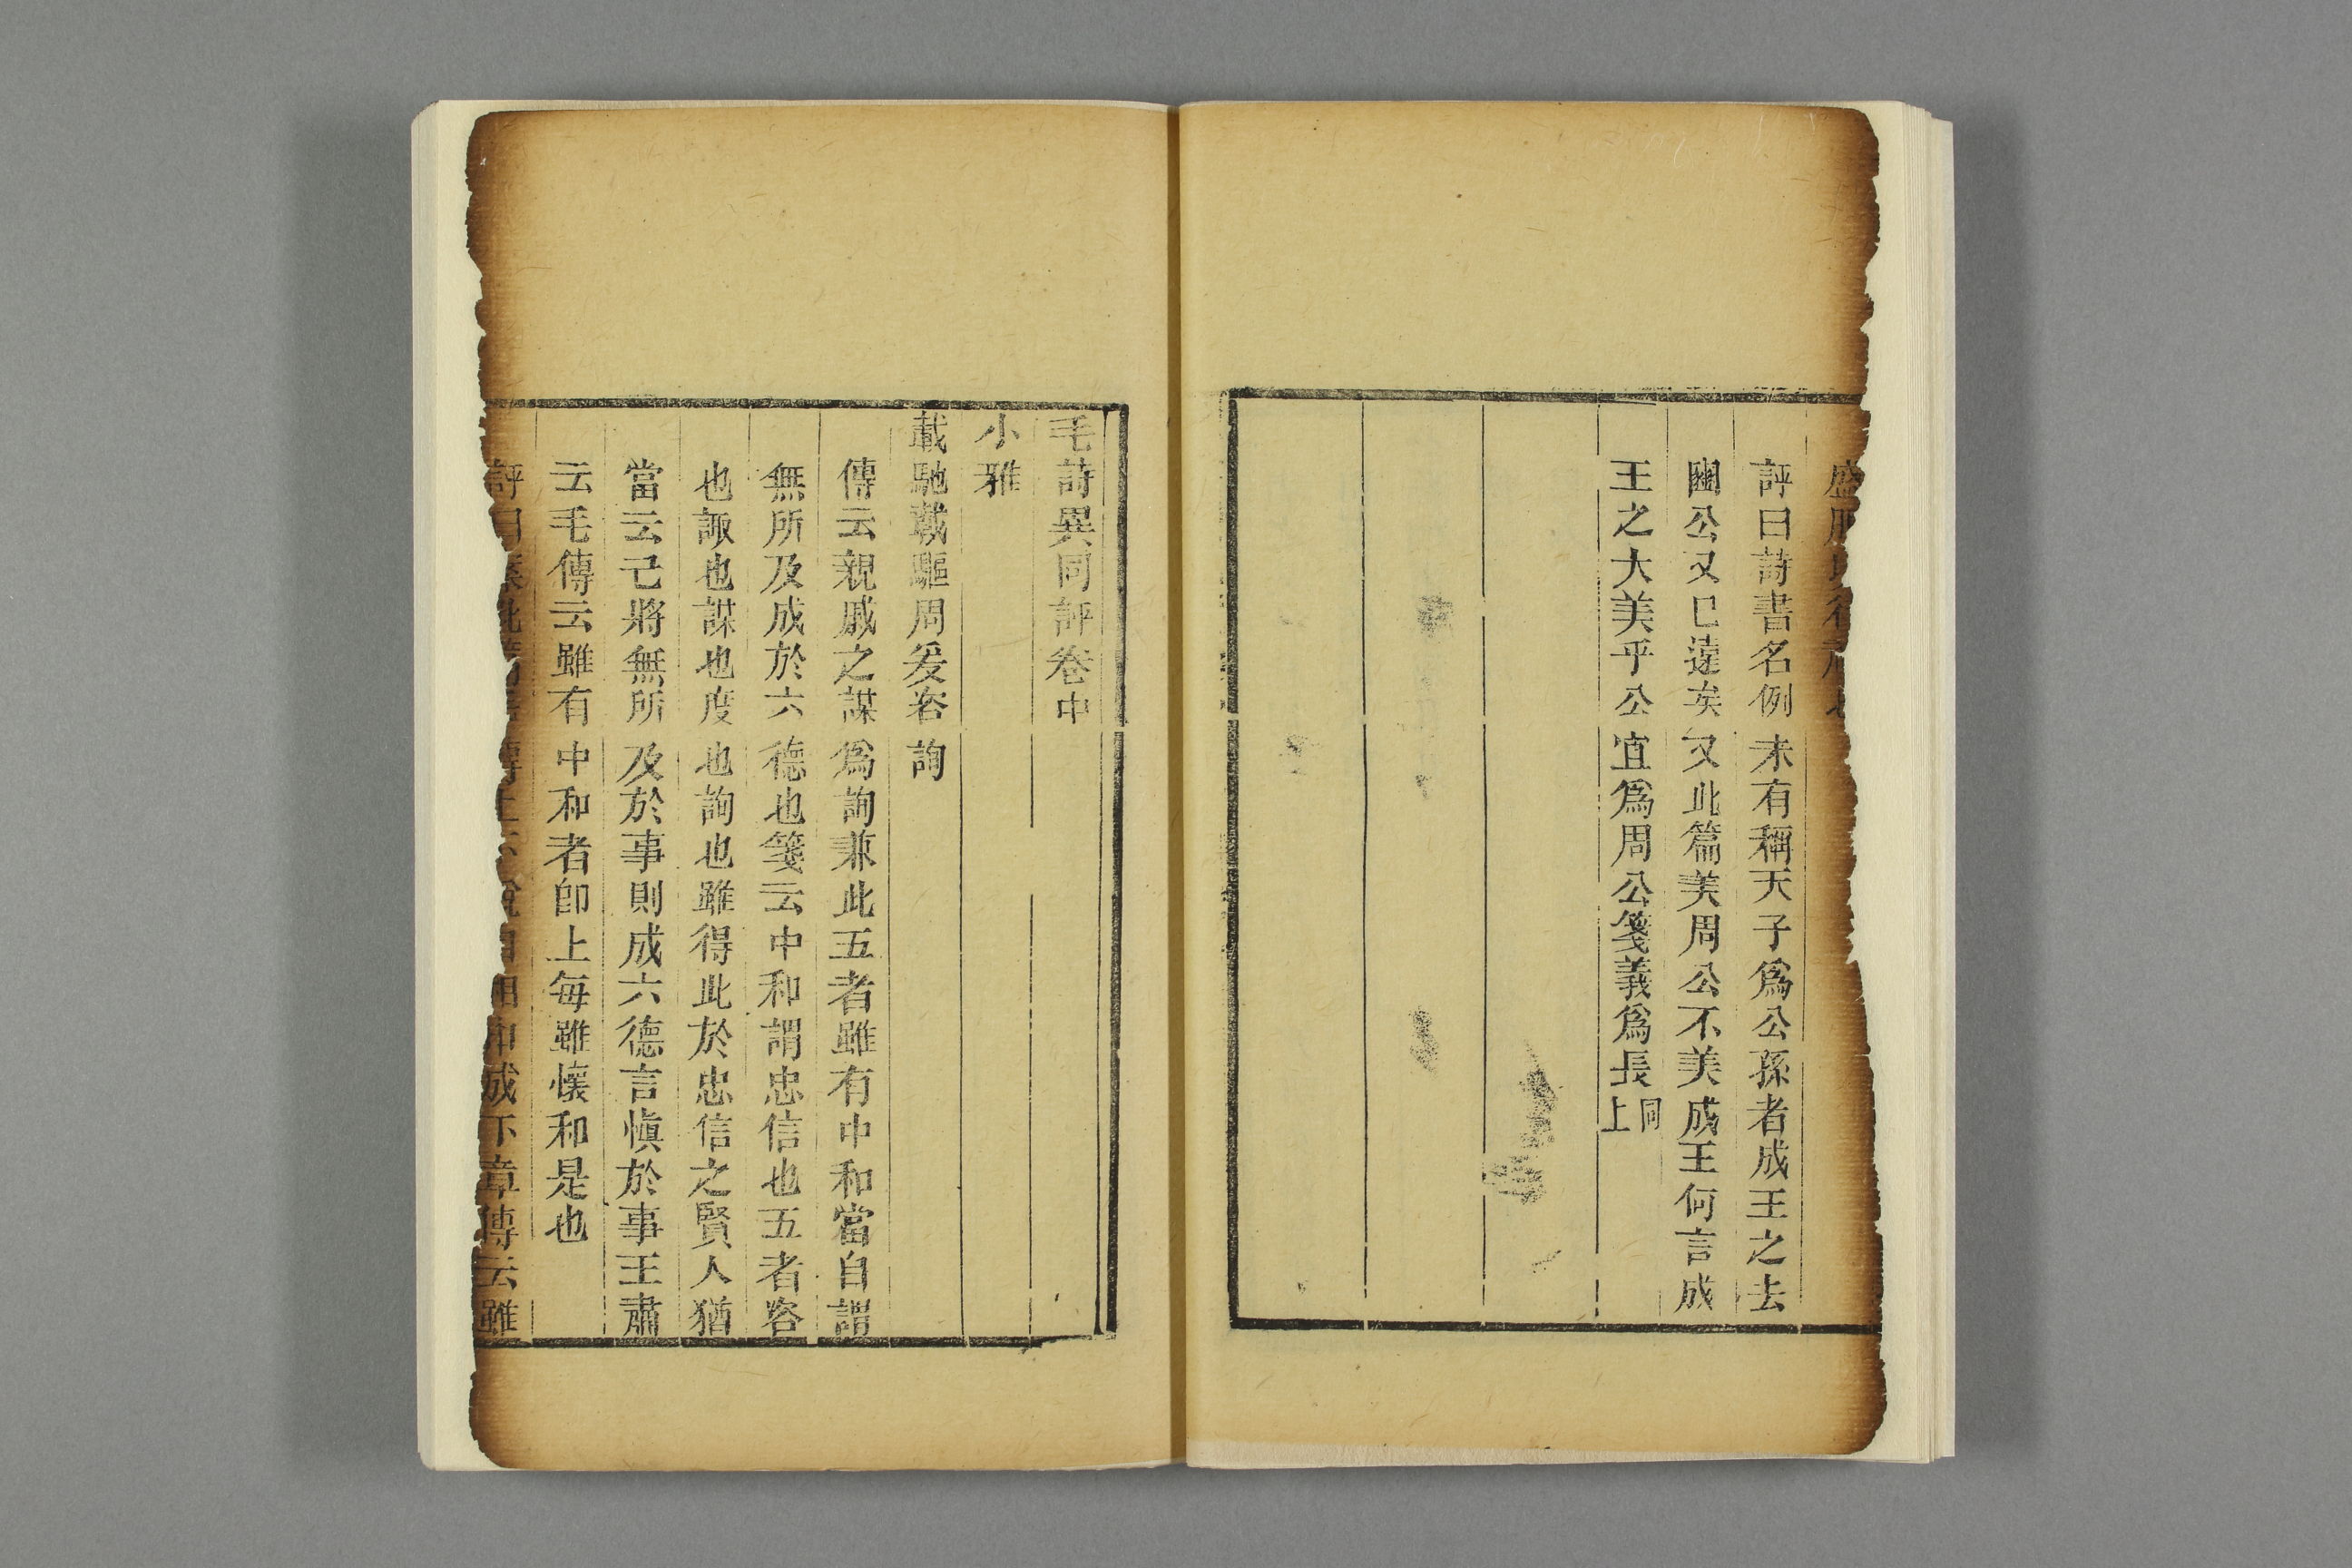 盛服以行禮也
評曰詩書名例未有稱天子爲公孫者成王之去
豳公又已遠矣又此篇美周公不美成王何言成
王之大美乎公宜爲周公箋義爲長同上
毛詩異同評卷中
小雅
載馳載驅周爰咨詢
傳云親戚之謀爲詢兼此五者雖有中和當自謂
無所及成於六德也箋云中和謂忠信也五者咨
也諏也謀也度也詢也雖得此於忠信之賢人猶
當云己將無所及於事則成六德言愼於事王肅
云毛傳云雖有中和者卽上每雖懷和是也
評曰案此篇傳上 說自相申成下章傳云雖